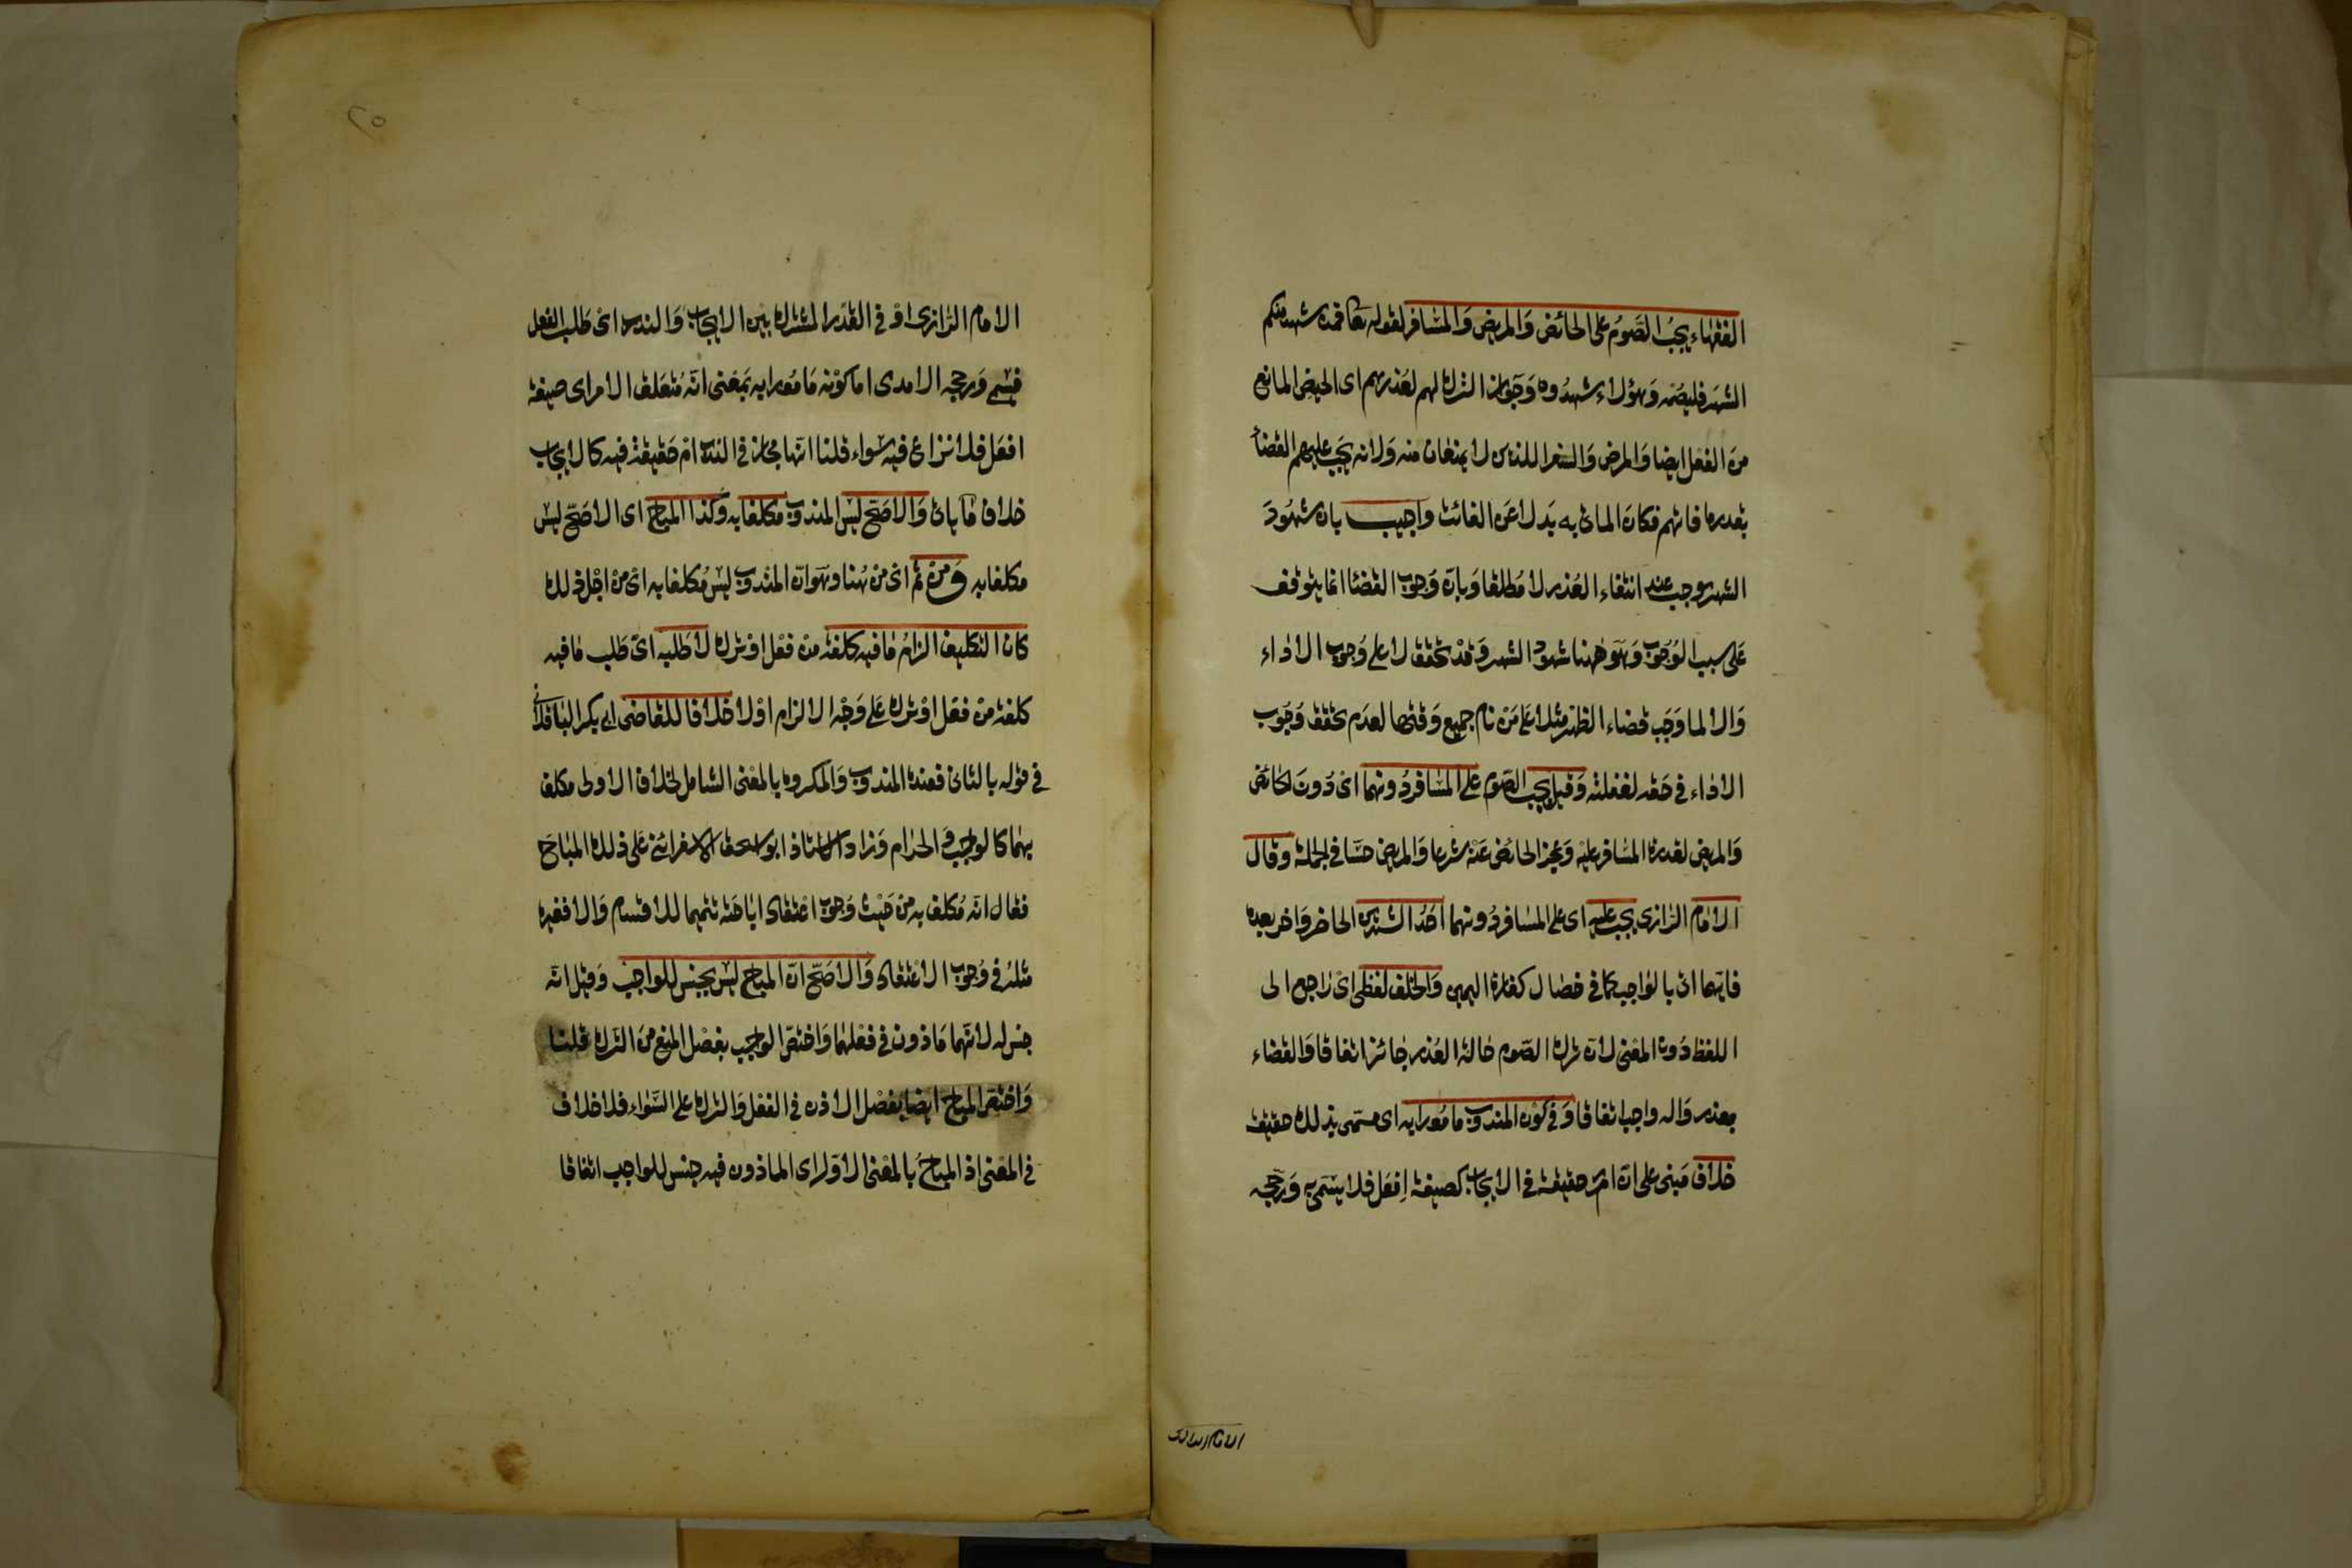 الفقهاء يجب الصوم على الحائض والمريض والمسافر لقوله تعا فمن شهد منكم
الشهر فليصمه وهؤلاء شهدوه وجواز الترك لهم لعذرهم اى الحيض المانع
من الفعل ايضا والمرض والسفر اللذين لا يمنعان منه ولانه يجب عليهم القضاء
بقدر ما فاتهم فكان الماتى به بدلا عن الفائت واجيب بان شهود
الشهر موجب عند انتفاء العذر لا مطلقا وبان وجوب القضا انما يتوقف
على سبب الوجوب وهو ههنا شهود الشهر وقد تحقق لا على وجوب الاداء
والا لما وجب قضاء الظهر مثلا على من نام جميع وقتها لعدم تحقق وجوب
الاداء فى حقه لغفلته وقيل يجب الصوم على المسافر دونهما اى دون الحائض
والمريض لقدرة المسافر عليه وعجز الحائض عنه شرعا والمريض حسا فى الجملة وقال
الامام الرازى يجب عليه اى على المسافر دونهما احد الشهرين الحاضر واخر بعده
فايهما اتى بالواجب كما فى خصال كفارة اليمين والخلف لفظى اى راجع الى
اللفظ دون المعنى لان ترك الصوم حالة العذر جائز اتفاقا والقضاء
بعد زواله واجب اتفاقا وفى كون المندوب مامورا به اى مسمى بذلك حقيقة
خلاف مبنى على ان امر حقيقة فى الايجاب كصيغة افعل فلا يسمى به ورجحه
الامام الرازى او فى القدر المشترك بين الايجاب والندب اى طلب الفعل
فيسمى ورجحه الامدى اما كونه مامورا به بمعنى انه متعلق الامر اى صيغة
افعل فلا نزاع فيه سواء قلنا انها مجاز فى الندب ام حقيقة فيه كالايجاب
خلاف ما ياتى والاصح ليس المندوب مكلفا به وكذا المباح اى الاصح ليس
مكلفا به ومن ثم اى من هنا وهو ان المندوب ليس مكلفا به اى من اجل ذلك
كان التكليف الزام ما فيه كلفة من فعل او ترك لا طلبه اى طلب ما فيه
كلفة من فعل او ترك على وجه الالزام او لا خلافا للقاضى ابى بكر الباقلانى
فى قوله بالثانى فعنده المندوب والمكروه بالمعنى الشامل لخلاف الاولى مكلف
بهما كالواجب والحرام وزاد الاستاذ ابو اسحق الاسفرائنى على ذلك المباح
فقال انه مكلف به من حيث وجوب اعتقاد اباحته تتميما للاقسام والا فغيره
مثله فى وجوب الاعتقاد والاصح ان المباح ليس بجنس للواجب وقيل انه
جنس له لانهما ماذون فى فعلهما واختص الواجب بفصل المنع من الترك قلنا
واختص المباح ايضا بفصل الاذن فى الفعل والترك على السواء فلا خلاف
فى المعنى اذ المباح بالمعنى الاول اى الماذون فيه جنس للواجب اتفاقا